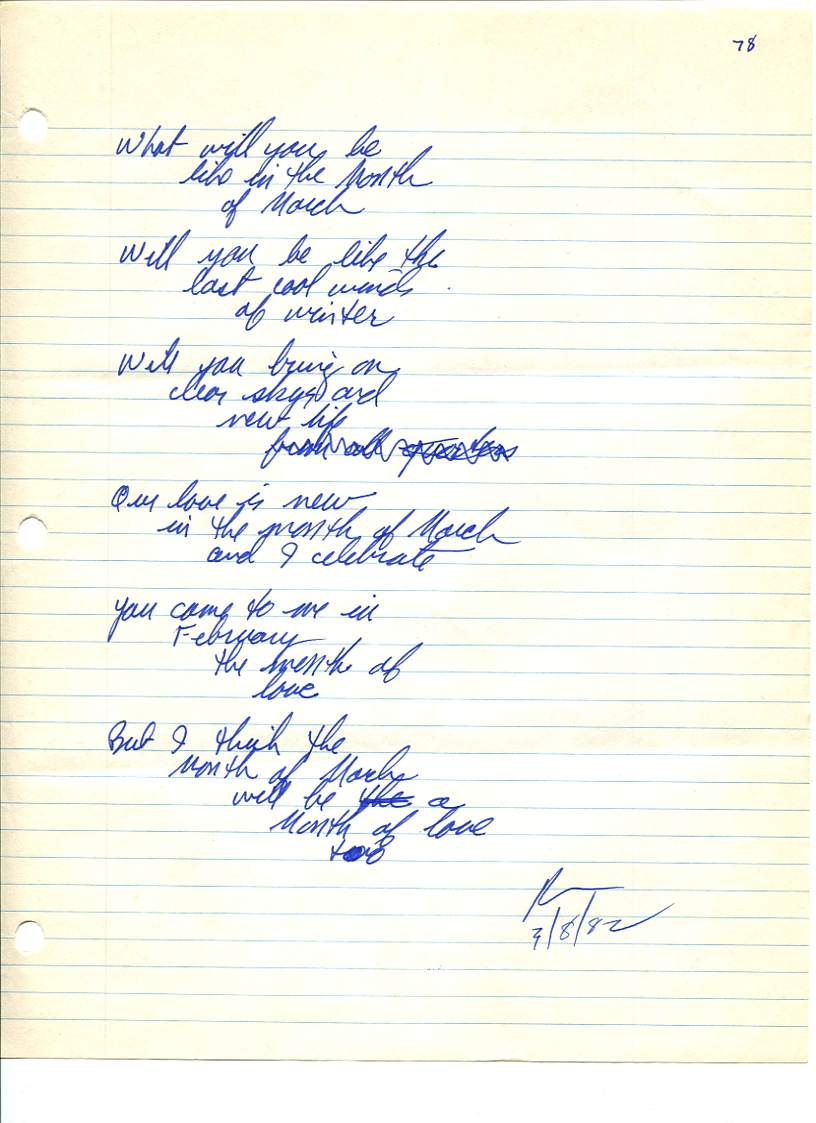 78
What will you be
like in the Month
of March
Will you be like the
last cool winds
of winter
Will you bring on
clear skys and
new life
from all
Our love is new
in the month of March
and I celebrate
you came to me in
February
the month of
love
But I think the
Month of March
will be the a
Month of love
too
3/8/82